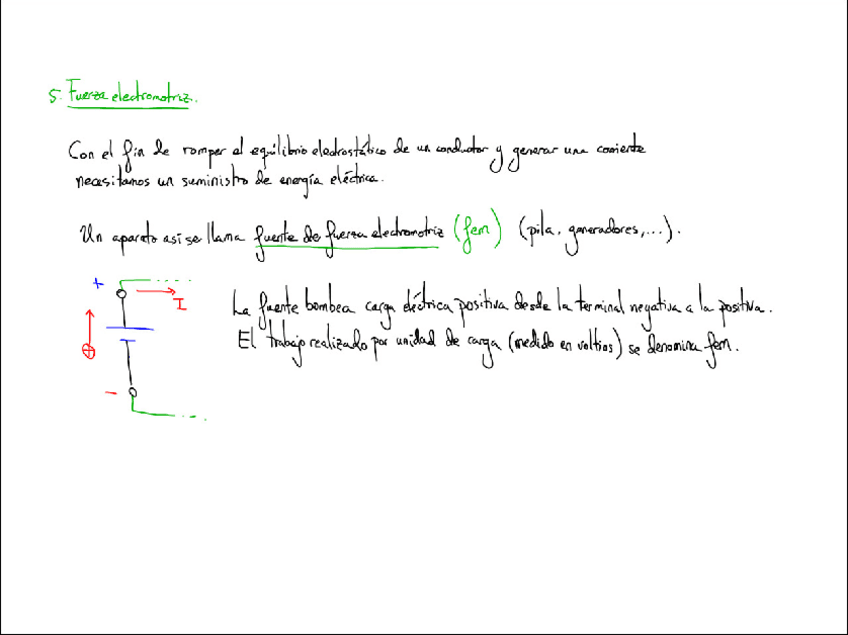 5. Fuerza electromotriz.
Con el fin de romper el equilibrio electrostático de un conductor y generar una corriente
necesitamos un suministro de energía eléctrica.
Un aparato así se llama fuente de fuerza electromotriz (fem) (pila, generadores,...).
+
I
La fuente bombea carga eléctrica positiva desde la terminal negativa a la positiva.
El trabajo realizado por unidad de carga (medido en voltios) se denomina fem.
+
-